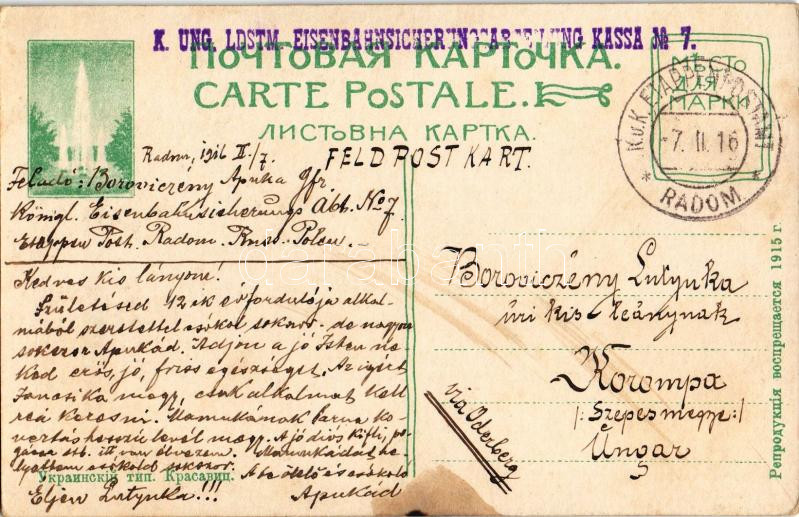 K. UNG. LDSTM. EISENBAHNSICHERUNGSABTEILUNG KASSA № 7.
ПОЧТОВАЯ КАРТОЧКА.
CARTE POSTALE.
ЛИСТОВНА КАРТКА.
МЕСТО
ДЛЯ
МАРКИ
K.u.K. ETAPPENPOSTAMT
-7. II. 16
* RADOM *
Radom, 1916 II/7.
FELDPOSTKART.
Feladó: Boroviczény Apuka Gfr.
Königl. Eisenbahnsicherungs Abt. No 7
Etappen Post. Radom. Russ. Polen. –
Kedves kis lányom!
Születésed 12-ik évfordulója alkal-
mából szeretettel csókol sokszor - de nagyon
sokszor Apukád. Adjon a jó Isten ne-
ked erős, jó, friss egészséget. Az igért
Jancsika megy, csak alkalmat kell
reá keresni. Mamukának barna bo-
rítás hosszú levél megy. A jó diós kifli, po-
gácsa stb. itt van élvezem. Mamukádat he-
lyettem csókold sokszor.
Éljen Lutyuka!!! Apukád
Boroviczény Lutyuka
úri kis-leánynak
Korompa
/: Szepes megye :/
Ungar
via Oderberg
Украинскій тип. Красавиц.
Репродукція воспрещается 1915 г.
darabanth